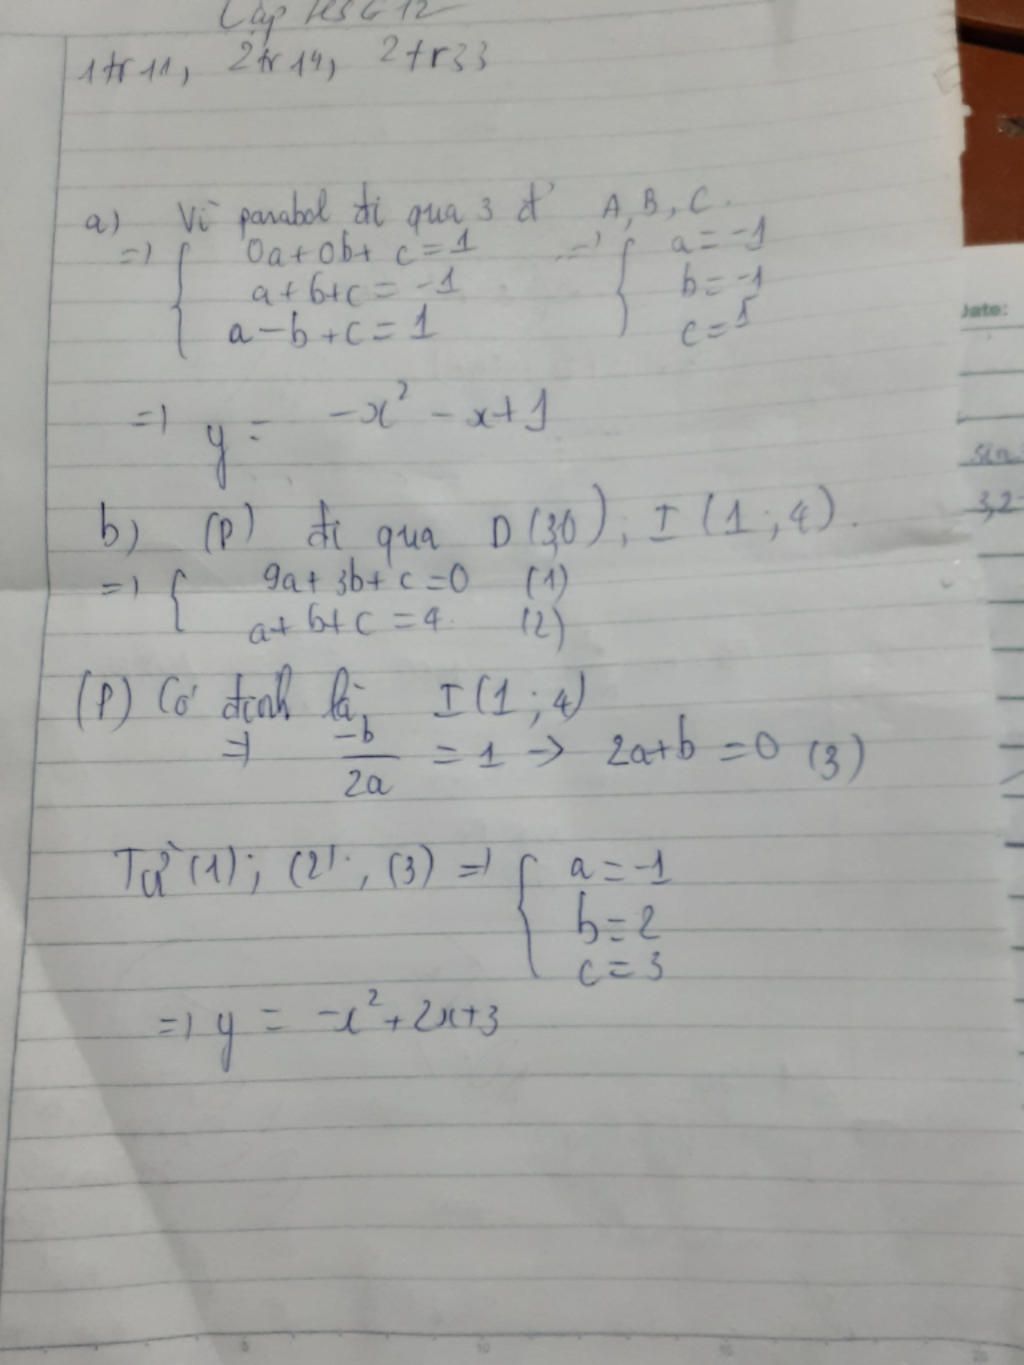 Lập HSG 12
1tr11, 2tr14, 2tr33
a) Vì parabol đi qua 3 đ' A, B, C.
=> { 0a + 0b + c = 1 => { a = -1
a + b + c = -1 b = -1
a - b + c = 1 c = 1
=> y = -x² - x + 1
b) (P) đi qua D(3,0), I(1;4).
=> { 9a + 3b + c = 0 (1)
a + b + c = 4. (2)
(P) Có đỉnh là I(1;4)
=> -b/2a = 1 -> 2a + b = 0 (3)
Từ (1); (2); (3) => { a = -1
b = 2
c = 3
=> y = -x² + 2x + 3
Date:
sin
3,2
5 10 15 20